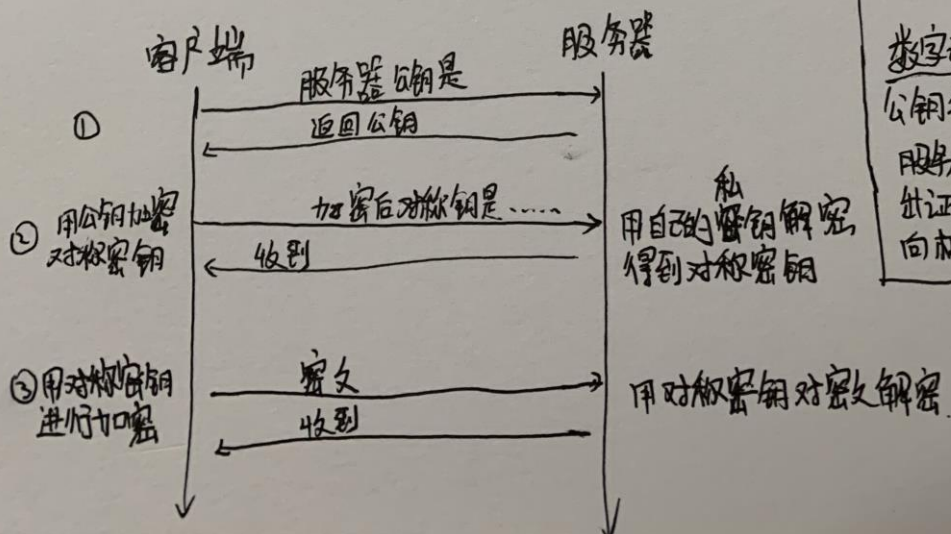 客户端
服务器
服务器公钥是
①
返回公钥
② 用公钥加密
对称密钥
加密后对称钥是……
私
用自己的密钥解密
得到对称密钥
收到
③ 用对称密钥
进行加密
密文
用对称密钥对密文解密
收到
数字
公钥
服务
出证
向